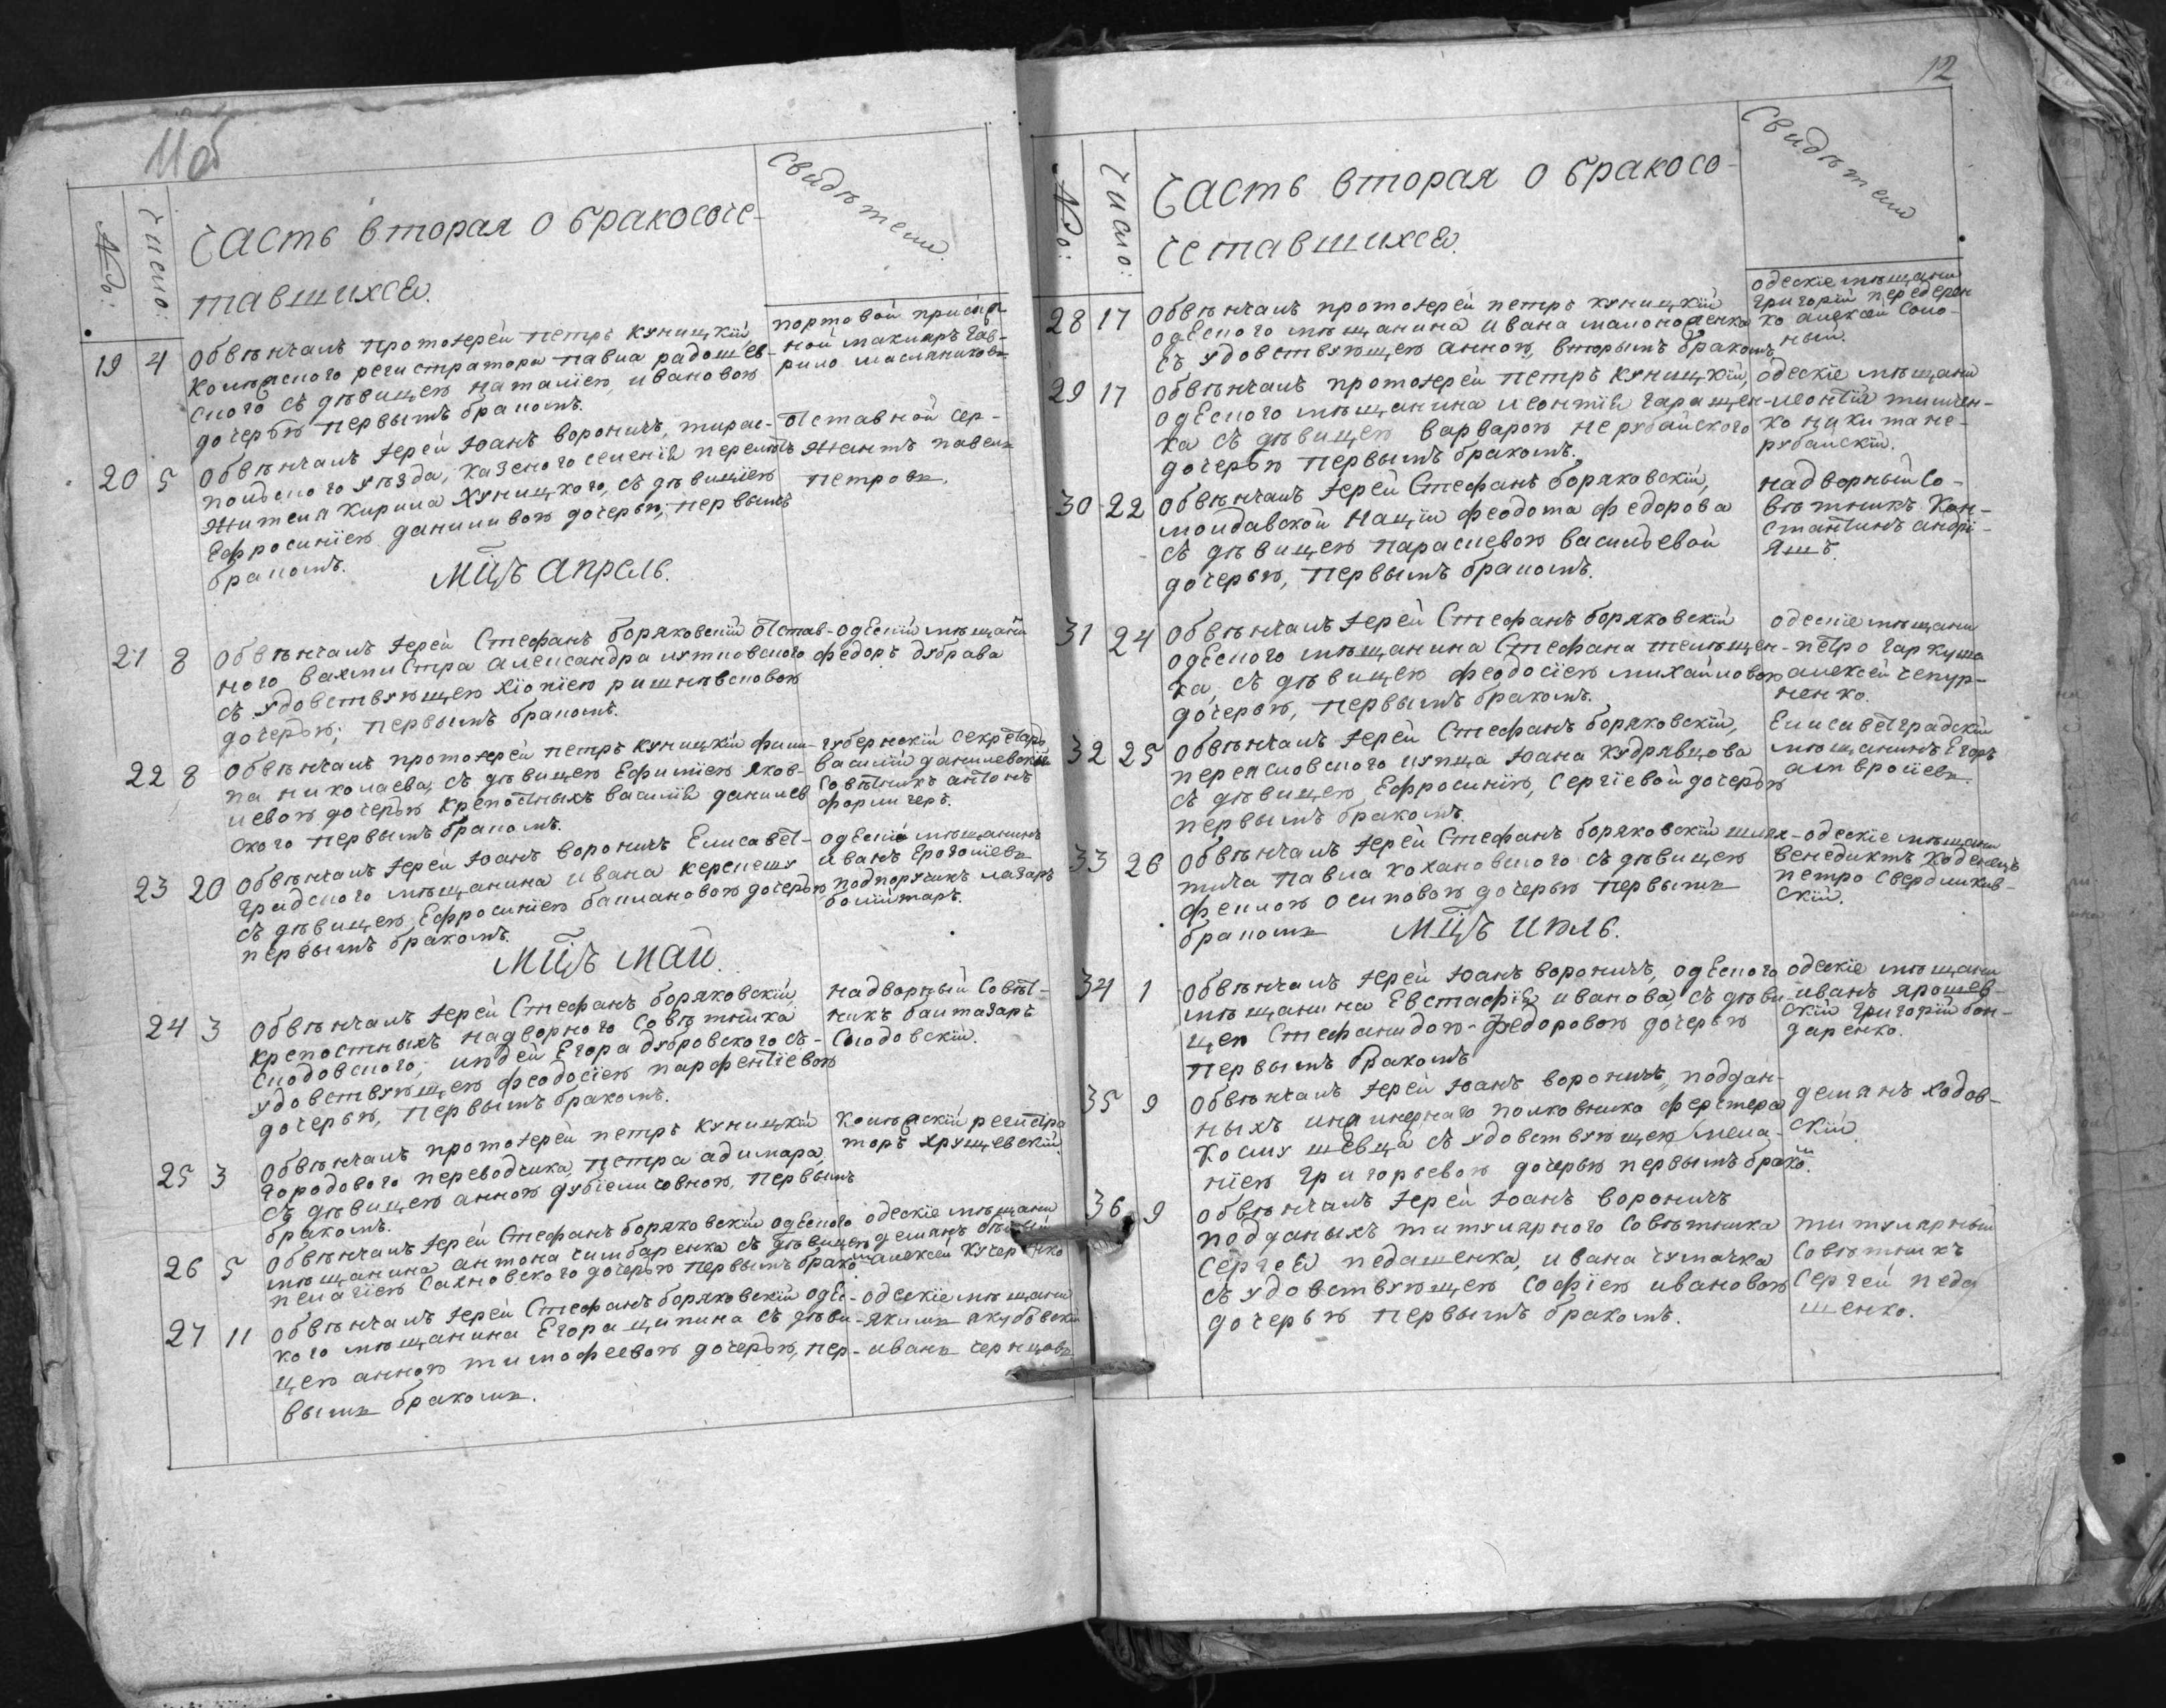 11об
№о: Число: Часть вторая о бракосоче-
тавшихся.
Свидѣтели.
19 4 Обвѣнчалъ протоіерей петръ куницкій,
Колежского регистратора павла радошев-
ского съ дѣвицею наталіею, ивановою
дочерью первымъ бракомъ.
портовой присяж
ной маклиръ гав-
рило масляниковъ
20 5 Обвѣнчалъ іерей іоанъ вороничъ, тирас-
польского уѣзда, казеного селенія
жителя кирила куницкого, съ дѣвицею
Ефросиніею даниливою дочерью, первымъ
бракомъ.
Отставной сер-
жантъ павелъ
петровъ.
Мцъ Апрель.
21 8 Обвѣнчалъ іерей Стефанъ боряковскій Отстав-
ного вахмистра александра
съ удовствующею
дочерью; первымъ бракомъ.
одескій мѣщанин
федоръ дубрава
22 8 Обвѣнчалъ протоіерей петръ куницкій фили-
па николаева, съ дѣвицею Ефиміею яков-
левою дочерью крепостныхъ василія данилев
ского первымъ бракомъ.
губернскій секретарь
василій данилевскій
Совѣтникъ антонъ
23 20 Обвѣнчалъ іерей іоанъ вороничъ Елисавет-
градского мѣщанина ивана
съ дѣвицею Ефросиніею дочерью
первымъ бракомъ.
одескіе мѣщанинъ
иванъ
подпоручикъ лазаръ
Мцъ Май.
24 3 Обвѣнчалъ іерей Стефанъ боряковскій,
крепостныхъ надворного Совѣтника
Слодовского, людей Егора дубровского съ-
удовствующею феодосіею парфентіевою
дочерью, первымъ бракомъ.
надворный Совѣт-
никъ балтазаръ
Слодовскій.
25 3 Обвѣнчалъ протоіерей петръ куницкій
городового переводчика, петра
съ дѣвицею анною первымъ
бракомъ.
Колежскій регистра
торъ хрущевскій
26 5 Обвѣнчалъ іерей Стефанъ боряковскій одеского
мѣщанина антона чимбаренка съ дѣвицею
пелагіею Сахновского дочерью первымъ бракомъ
одескіе мѣщани
демянъ
алексей
27 11 Обвѣнчалъ іерей Стефанъ боряковскій одес-
кого мѣщанина Егора ципина съ дѣви-
цею анною тимофеевою дочерью, пер-
вымъ бракомъ.
одескіе мѣщани
якимъ якубовскій
иванъ чернцовъ
12
№о: Число: Часть вторая о бракосо-
четавшихся.
Свидѣтели
28 17 Обвѣнчалъ протоіерей петръ куницкій
одеского мѣщанина ивана
съ удовствующею анною, вторымъ бракомъ,
одескіе мѣщани
григорій передерен
ко алексей Соло-
ный.
29 17 Обвѣнчалъ протоіерей петръ куницкій,
одеского мѣщанина леонтія гаращен-
ка съ дѣвицею варварою нерубайского
дочерью первымъ бракомъ.
одескіе мѣщани
леонтій тимчен-
ко никита не-
рубайскій.
30 22 Обвѣнчалъ іерей Стефанъ боряковскій,
молдавской націи феодота федорова
съ дѣвицею параскевою василъевой
дочерью, первымъ бракомъ.
надворный Со-
вѣтникъ Кон-
стантинъ андрі-
яшъ.
31 24 Обвѣнчалъ іерей Стефанъ боряковскій
одеского мѣщанина Стефана
ка, съ дѣвицею феодосіею михайловою
дочерью, первымъ бракомъ.
одескіе мѣщани
петро гаркуша
алексей чепур-
ненко.
32 25 Обвѣнчалъ іерей Стефанъ боряковскій,
переясловского купца іоана кудрявцова
съ дѣвицею, Ефросинію, Сергіевой дочерью
первымъ бракомъ.
Елисаветградскій
мѣщанинъ Егоръ
амвросіевъ.
33 26 Обвѣнчалъ іерей Стефанъ боряковскій шлях-
тича павла кохановского съ дѣвицею
феклою осиповою дочерью первымъ
бракомъ
одескіе мѣщани
венедиктъ
петро Свердликов-
скій.
Мцъ Июль.
34 1 Обвѣнчалъ іерей іоанъ вороничъ, одеского
мѣщанина Евстафія иванова, съ дѣви-
цею Стефанидою-федоровою дочерью
первымъ бракомъ
одескіе мѣщани
иванъ ярошев-
скій григорій бон-
даренко.
35 9 Обвѣнчалъ іерей іоанъ вороничъ, поддан-
ныхъ инжинернаго полковника ферстера
Косму шевца съ удовствующею мела-
ніею григорьевою дочерью первымъ бракомъ.
демянъ ходов-
скій
36 9 обвѣнчалъ іерей іоанъ вороничъ
подданыхъ титулярного Совѣтника
Сергея педашенка, ивана чумачка
съ удовствующею Софіею ивановою
дочерью первымъ бракомъ.
титулярный
Совѣтникъ
Сергей педа
шенко.